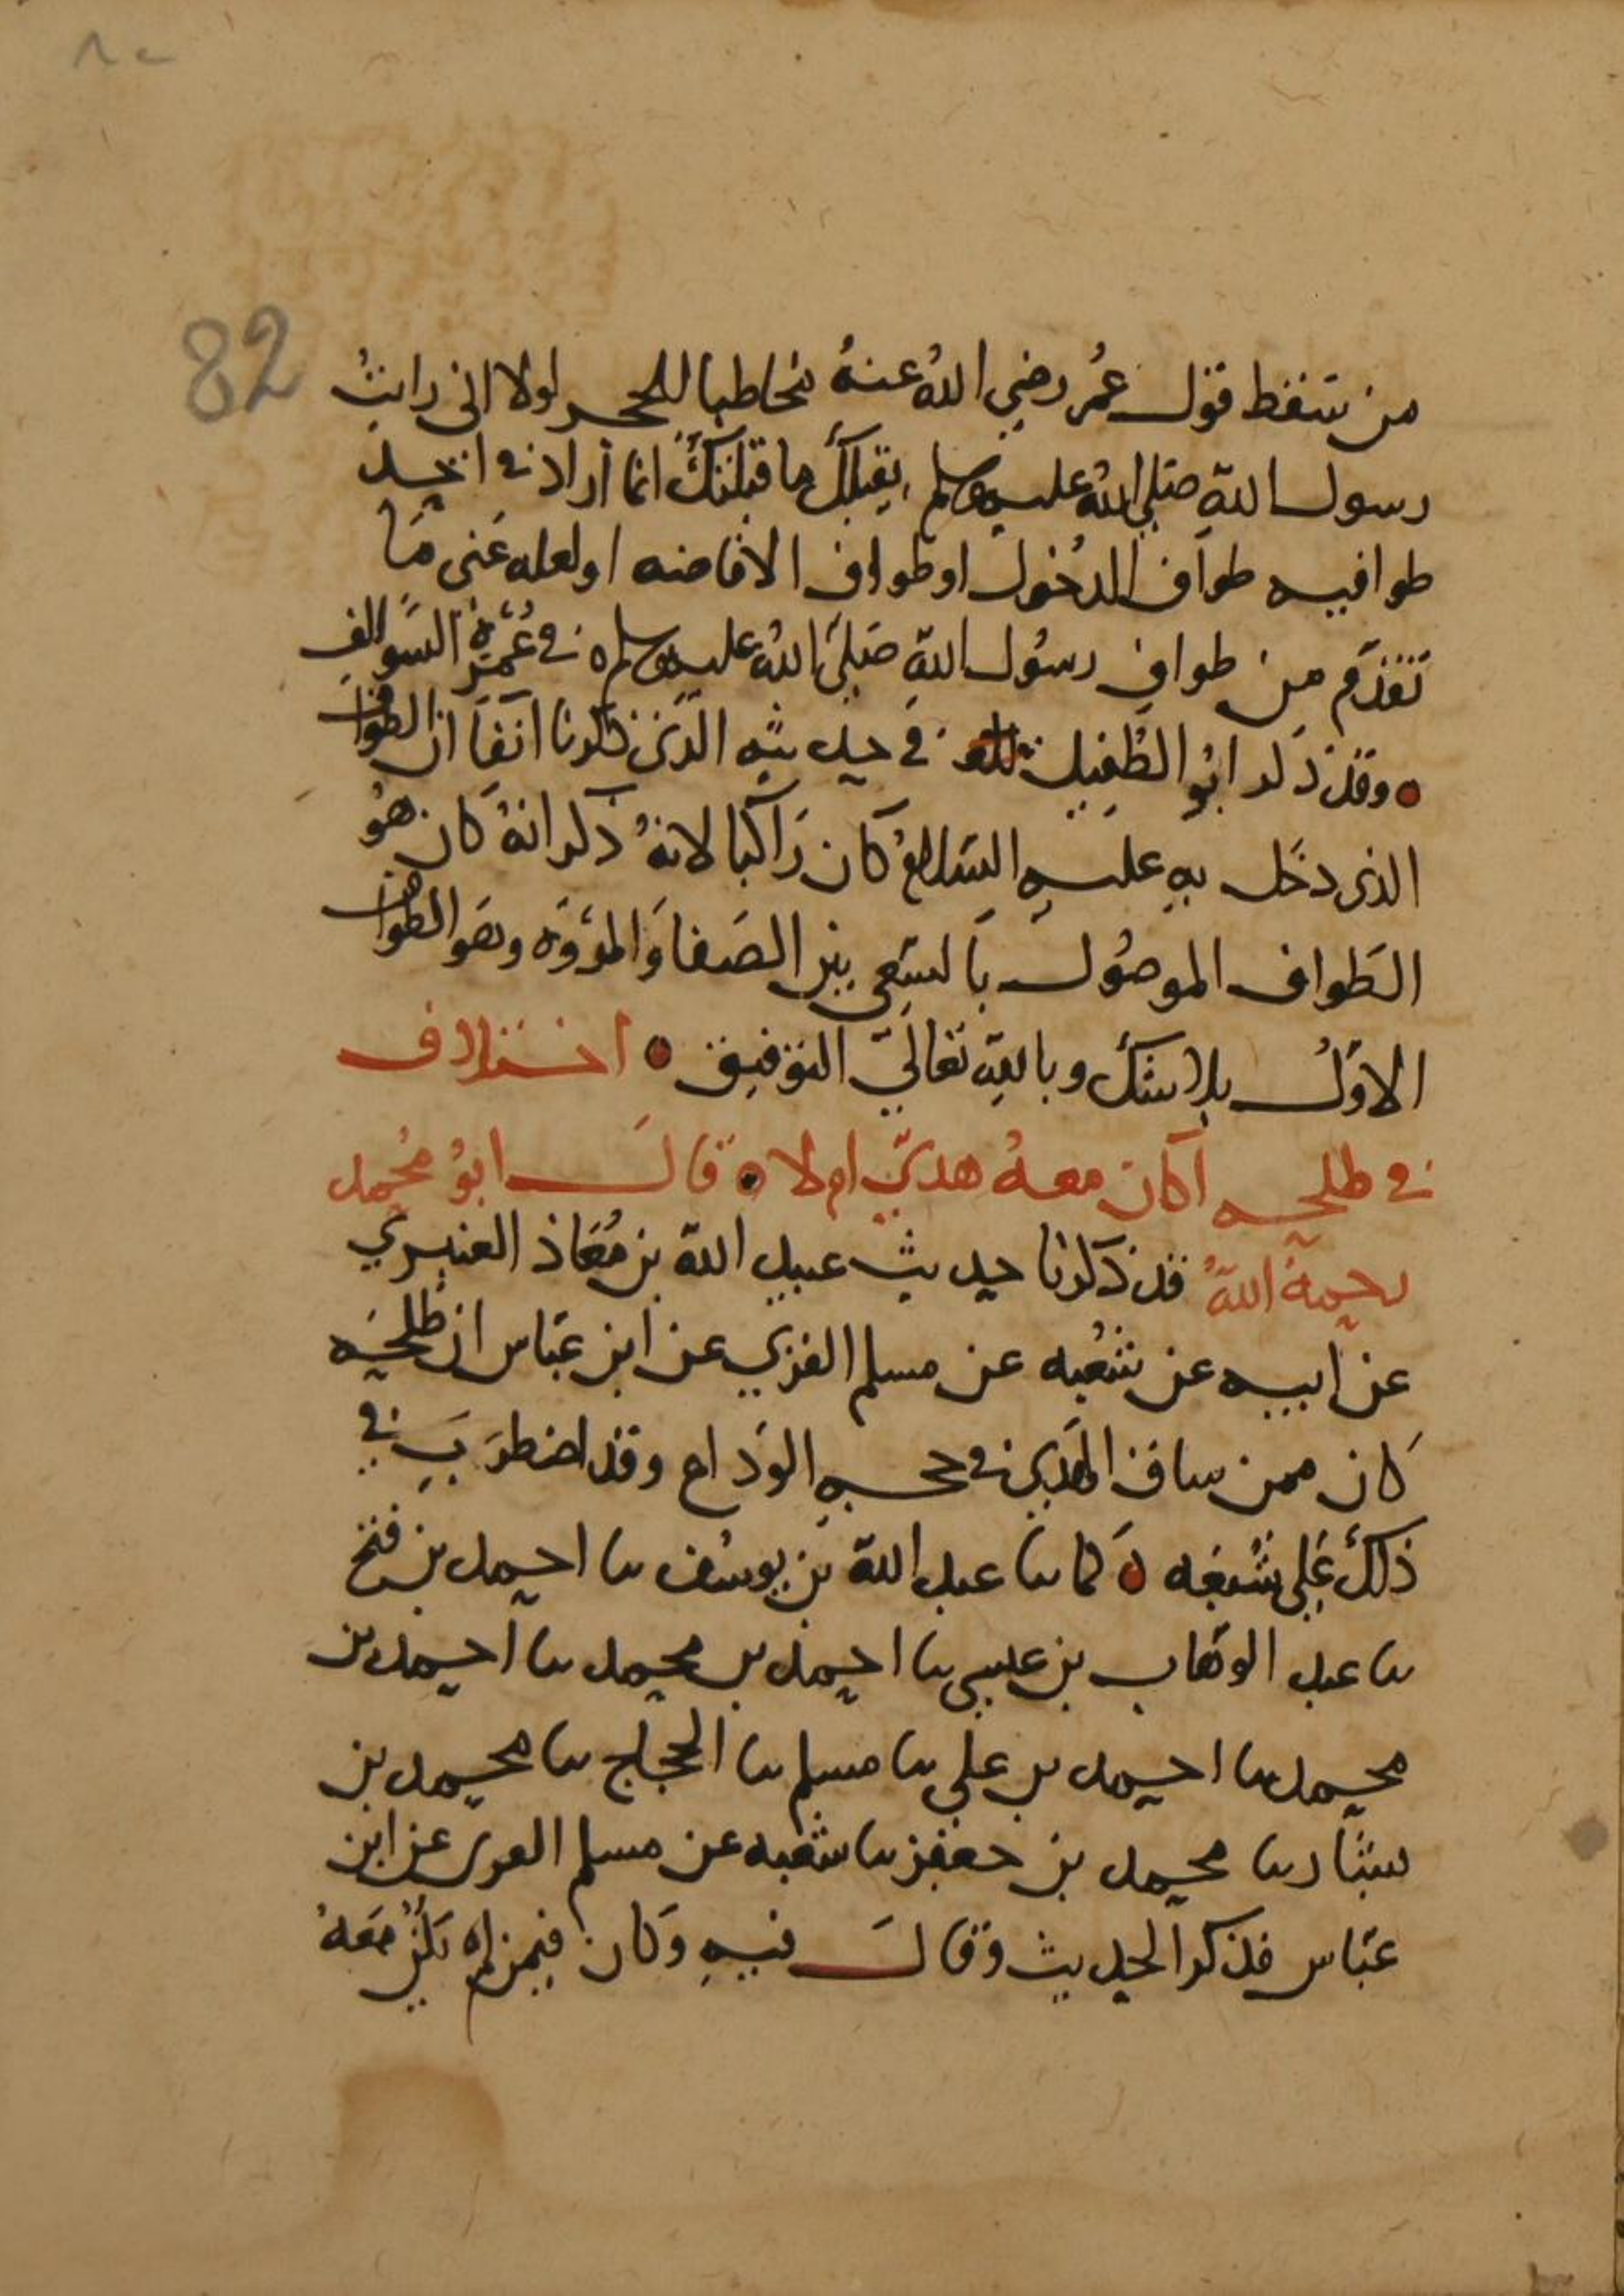 ٨٢
82
من سقط قول عمر رضي الله عنهُ مخاطبا للحجر لولا انى رايتُ
رسول اللهِ صلى الله عليه وسلم يقبلك ما قبلتك انما أراد في احد
طوافيه طواف الدخول او طواف الافاضه او لعله عنى مَا
تقدم من طواف رسُول اللهِ صَلى اللهُ عليه وسلم في عُمَرِه السَّوالفِ
وقد ذكر ابُو الطُفيل في حديثهِ الذى ذكرنا آنفاً ان الطواف
الذى دخَل بهِ عليهِ السَلامُ كان رَاكبا لانهُ ذكر انهُ كان هُو
الطَواف الموصُول بالسَعي بين الصَفا وَالمروَه وهَو الطواف
الاوّلُ بلا شك وباللهِ تعالى التوفيق اختلاف
في طلحه اكان معهُ هديٌ ام لا قالَ ابُو مُحمد
رحمهُ اللهُ قد ذكرنا حديث عبيد الله بن مُعَاذ العنبري
عن ابيه عن شُعبه عن مسلم القري عن ابن عَباس ان طلحَه
كَان ممن ساق الهَدي في حجهِ الوَداع وقد اضطرَب في
ذلك عَلى شُعبَه كما نا عبد الله بن يوسُف نا احمد بن فتح
نا عبد الوَهاب بن عيسى نا احمد بن محمد نا احمد بن
محمد نا احمد بن علي نا مسلم نا الحجاج نا محمد بن
بشار نا محمد بن جعفر نا شعبه عن مسلم القرى عن ابن
عَباس فذكر الحديث وقالَ فيهِ وَكان فيمن لم يَكُن مَعَهُ